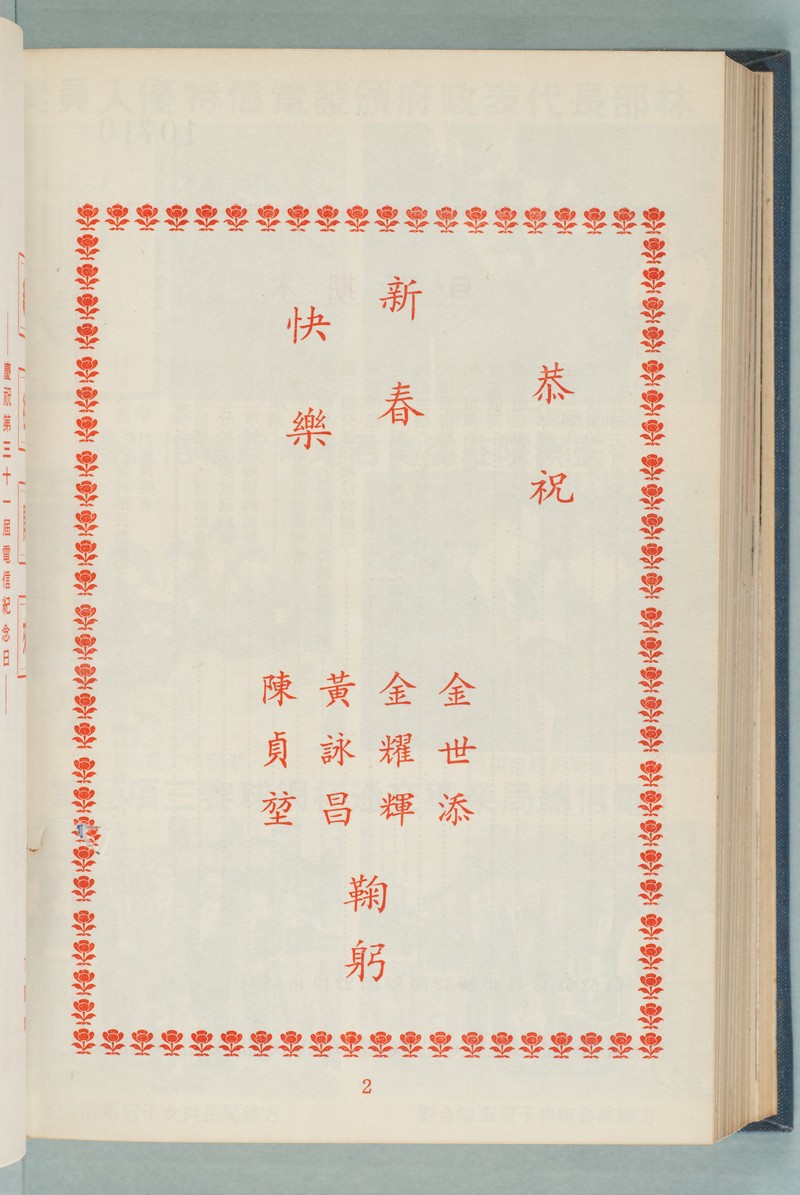 恭祝
新春
快樂
金世添
金耀輝
黃詠昌
陳貞堃
鞠躬
2
慶祝第三十一屆電信紀念日